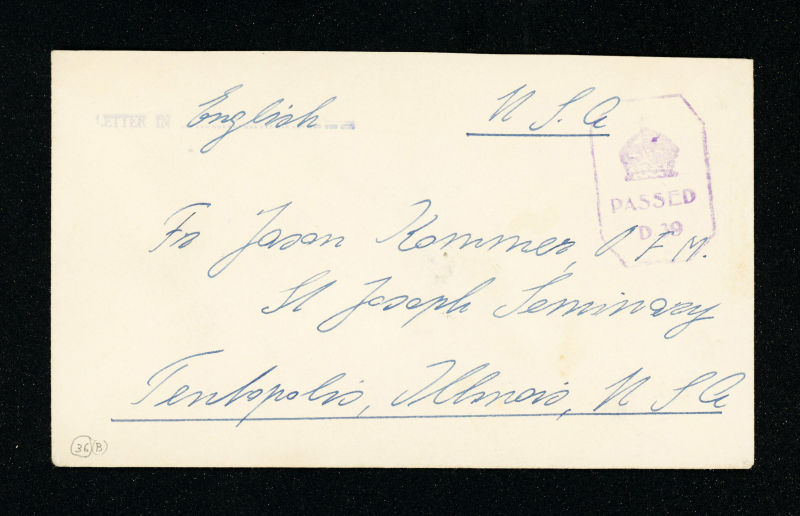 LETTER IN English
U S. A
PASSED
D 39
Fr Jason Kommer, O F M.
St Joseph Seminary
Teutopolis, Illinois, U S A
36 B